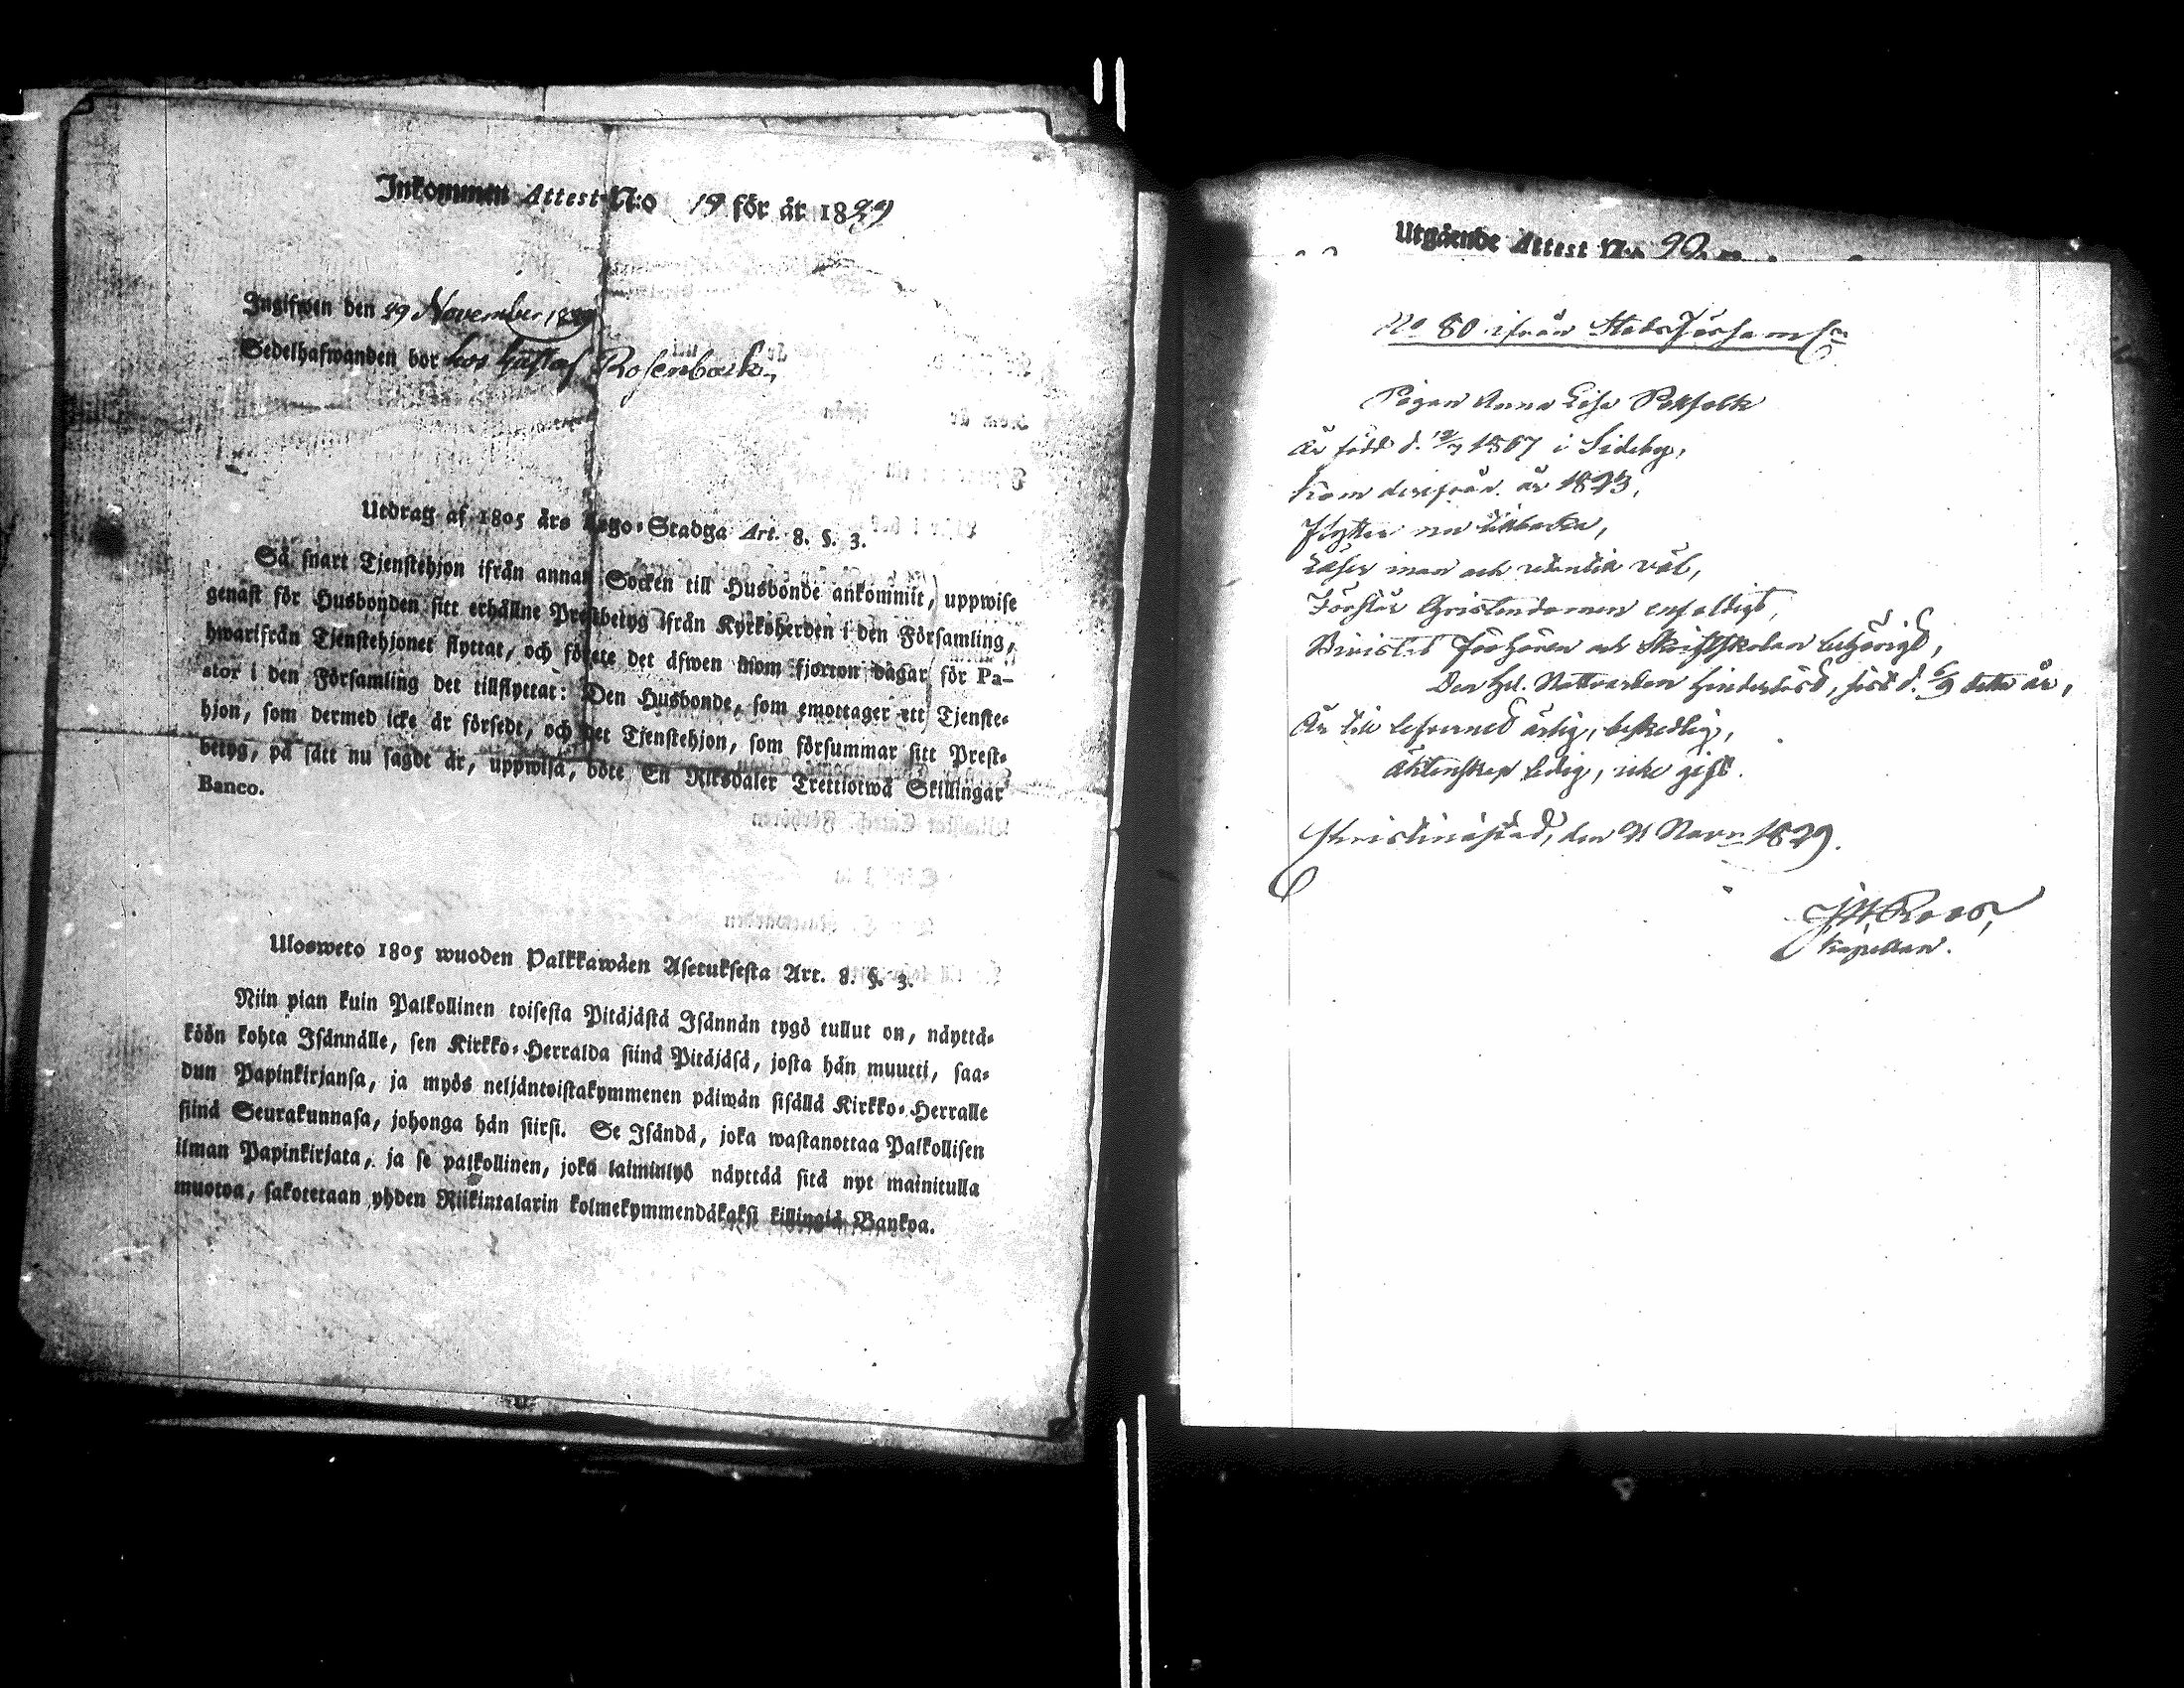 Inkommen Attest N:o 19 för år 1829
Ingifwen den 29 November 1829
Sedelhafwanden bor hos Gustaf Rosenback,
Utdrag af 1805 års Lego-Stadga Art. 8. §. 3.
Så snart Tjenstehjon ifrån annan Socken till Husbonde ankommit, uppwise
genast för Husbonden sitt erhållne Prestbetyg ifrån Kyrkoherden i den Församling,
hwarifrån Tjenstehjonet flyttat, och förete det äfwen inom fjorton dagar för Pa-
stor i den Församling det tillflyttat: Den Husbonde, som emottager ett Tjenste-
hjon, som dermed icke är försedt, och det Tjenstehjon, som försummar sitt Prest-
betyg, på sätt nu sagdt är, uppwisa, böte En Riksdaler Trettiotwå Skillingar
Banco.
Ulosweto 1805 wuoden Palkkawäen Asetuksesta Art. 8. §. 3.
Niin pian kuin Palkollinen toisesta Pitäjästä Isännän tygö tullut on, näyttä-
köön kohta Isännälle, sen Kirkko-Herralda siinä Pitäjäsä, josta hän muutti, saa-
dun Papinkirjansa, ja myös neljäntoistakymmenen päiwän sisällä Kirkko-Herralle
siinä Seurakunnasa, johonga hän siirsi. Se Isändä, joka wastanottaa Palkollisen
ilman Papinkirjata, ja se palkollinen, joka laiminlyö näyttää sitä nyt mainitulla
muotoa, sakotetaan yhden Riikintalarin kolmekymmendäkaksi killingiä Bankoa.
Utgående Attest N:o
No 80 ifrån Stads Församl:n
Pigan Anna Lisa Påhfolk
Är född d. 12/7 1807 i Sideby,
Kom derifrån år 1823,
Flyttar nu tillbaka,
Läser innan och utantill väl,
Förstår Christendomen enfaldigt,
Bivistat förhören och Skriftskolan behörigt,
Den Hel. Nattvarden hinderlöst, sist d. 6/9 detta år,
Är till lefverned ärlig, beskedlig,
Äktenskap ledig, icke gift.
Christinæstad, den 21 Nov:r 1829.
Roos,
Kapellan.